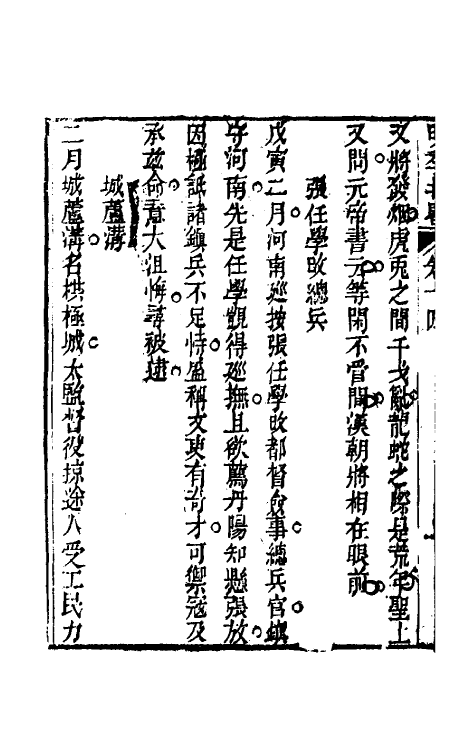 明季北畧 卷十四
又將發烟虎兎之間干戈亂龍蛇之際是荒年聖上
又問元帝書云等閑不管問漢朝將相在眼前
張任學改總兵
戊寅二月河南廵按張任學改都督僉事總兵官鎮
守河南先是任學覬得廵撫且欲薦丹陽知縣張放
因極詆諸鎮兵不足恃盛稱文吏有奇才可禦寇及
承兹命意大沮悔尋被逮
城蘆溝
二月城蘆溝名拱極城太監督役掠途人受工民力